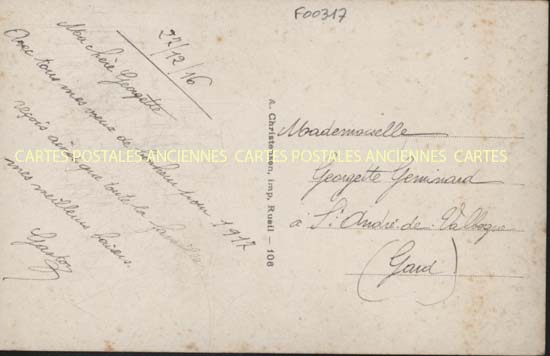 F00317
27/12/16
Ma chère Georgette
Avec tous mes vœux de bonheur pour 1917
reçois ainsi que toute la famille
mes meilleurs baisers.
Gaston
A. Christensen, imp. Rueil — 106
Mademoiselle
Georgette Geminard
à St André-de-Valborgne
(Gard)
CARTES POSTALES ANCIENNES CARTES POSTALES ANCIENNES CARTES